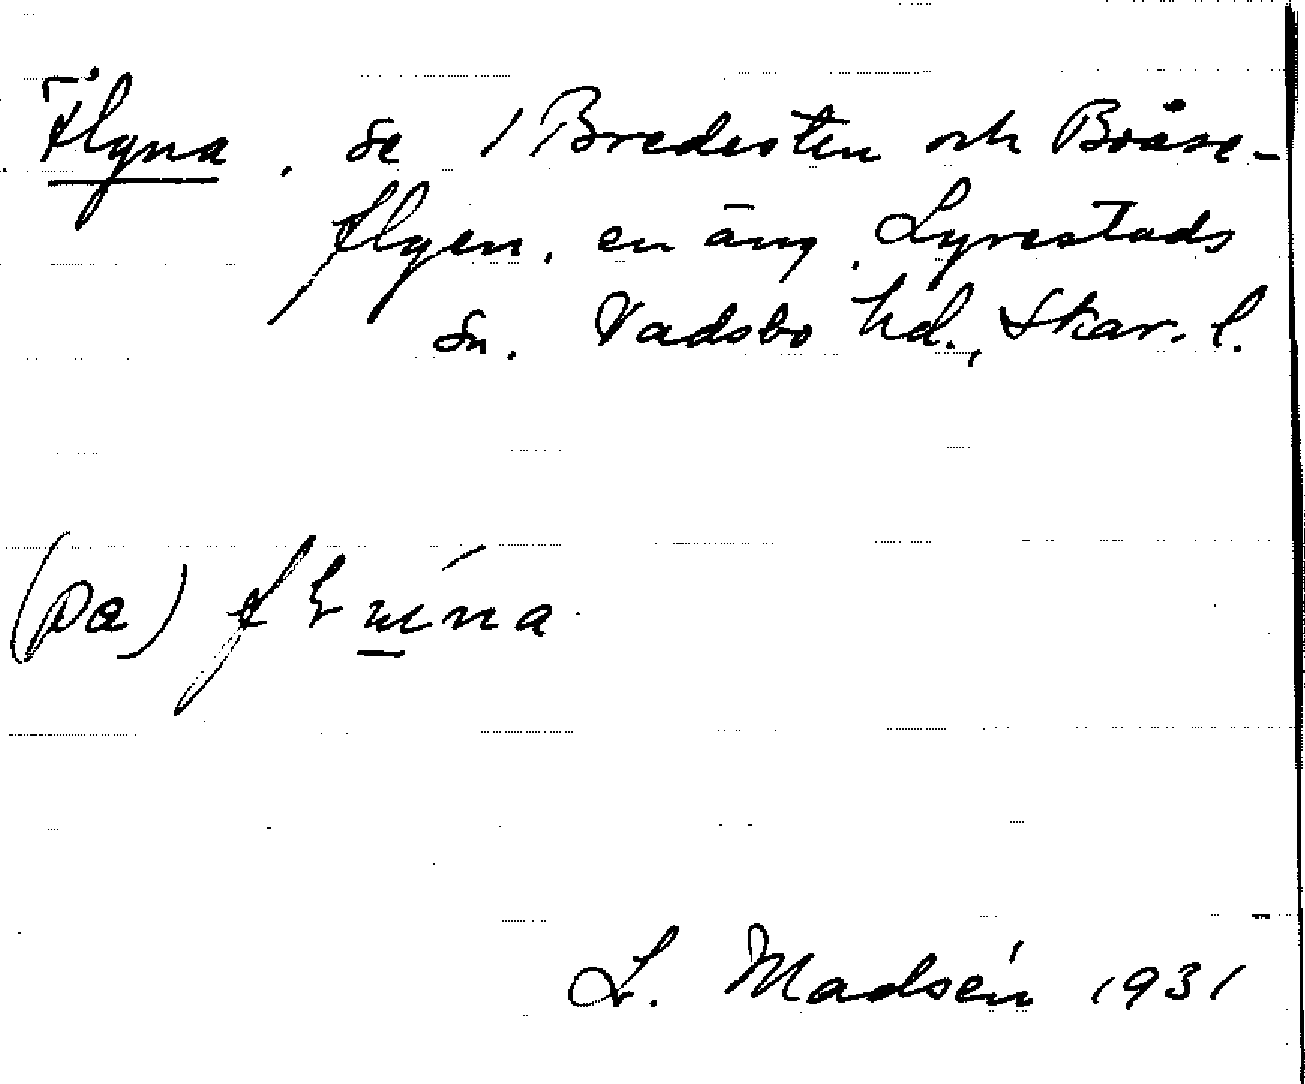 Flyna, se / Bredesten och Boåse-
flyen, en äng, Lyrestads
sn. Vadsbo hd., Skar. l.
(pa)
L. Madsén 1931